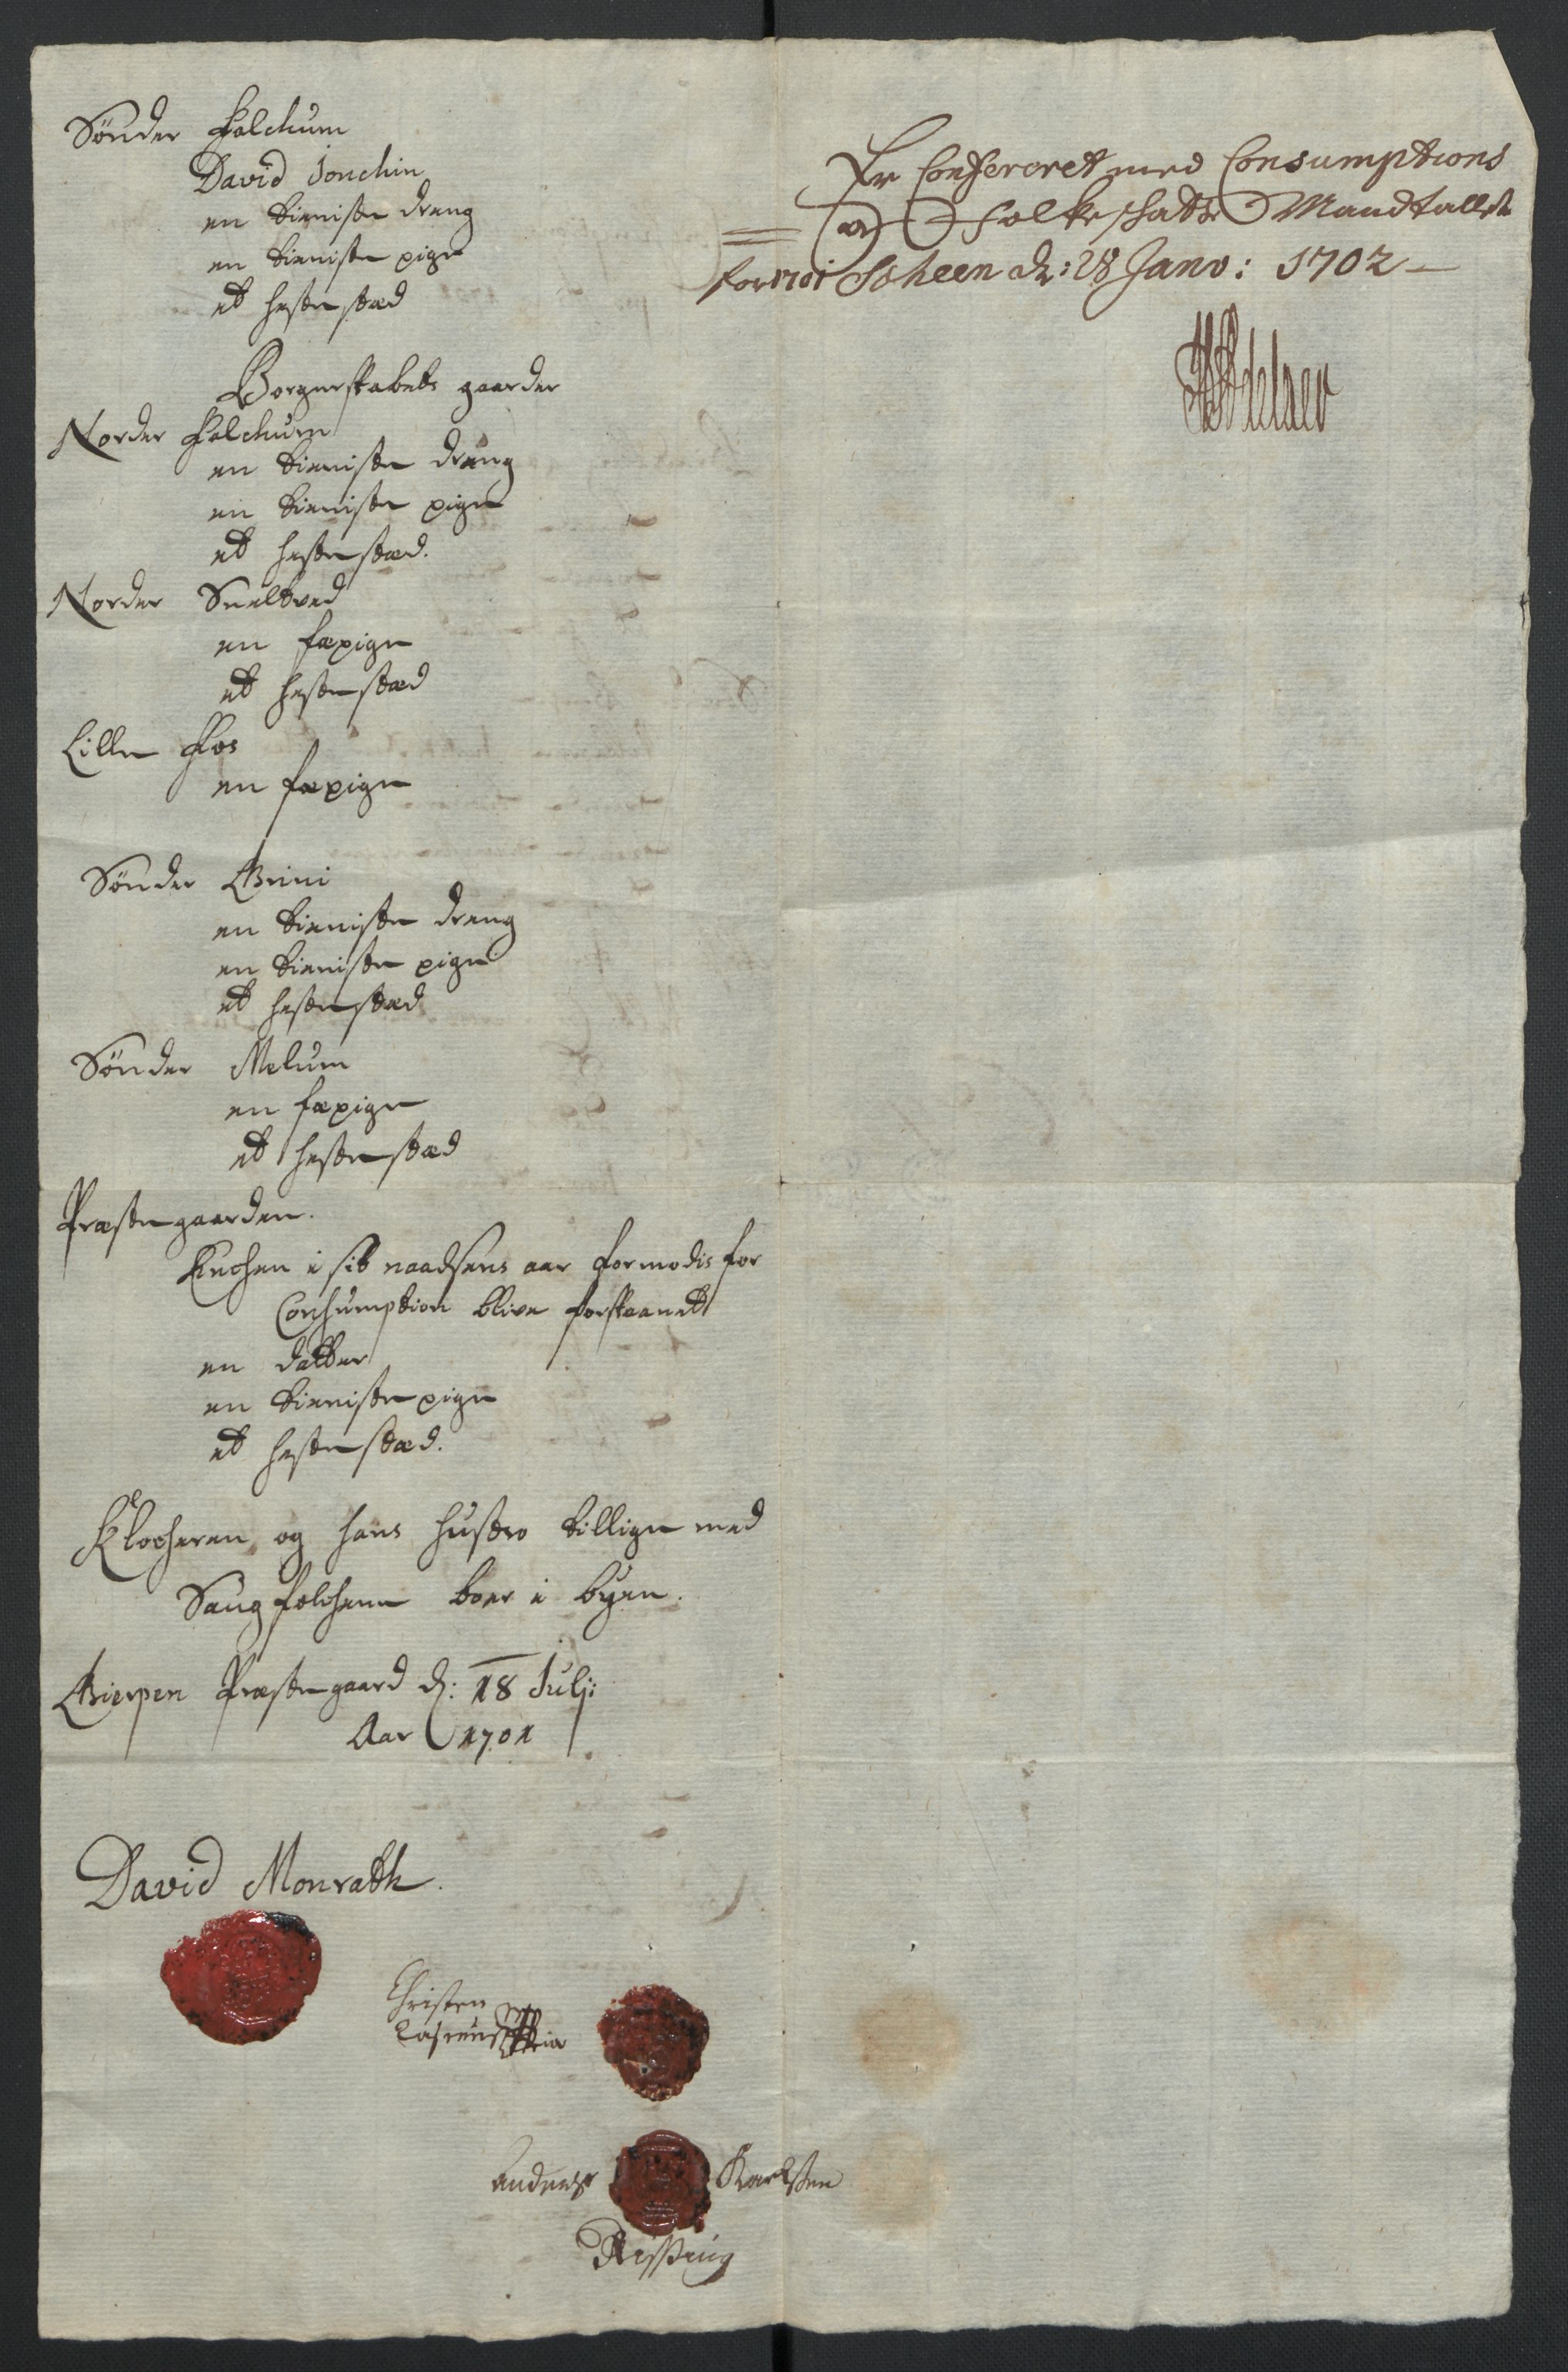 Sønder Falchum
David Jonchin
en tieniste dreng
en tieniste pige
et hestestæd
Borgerskabets gaarder
Norder Falchum
en tieniste dreng
en tieniste pige
et hestestæd.
Norder Sneltved
en fæpige
et hestestæd
Lille Fos
en fæpige
Sønder Grini
en tieniste dreng
en tieniste pige
et hestestæd
Sønder Melum
en fæpige
et hestestæd
Præstegaarden.
Enchen i sit naadsens aar formodis for
Conhumption blive forskaanet
en datter
en tieniste pige
et hestestæd.
Klocheren og hans hustro tillige med
Saugfolchene boer i byen.
Gierpen Præstegaard d: 18 Julj:
Aar 1701
David Monrath.
Christen
Anders Karlsen
Er Confereret med Consumptions
og Folkeschatte Mandtallet
for 1701 Scheen d: 28 Janv: 1702
Adelaer